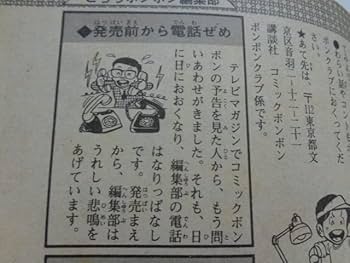 こちらボンボン編集部
ボンクラブにおくってくだ
さい。
★あて先は、〒112東京都文
京区音羽二―十二―二十一
講談社 コミックボンボン
ボンボンクラブ係です。
◆発売前から電話ぜめ
テレビマガジンでコミックボン
ボンの予告を見た人から、もう問
いあわせがきました。それも、日
に日におおくなり、編集部の電話
はなりっぱなし
です。発売まえ
から、編集部は
うれしい悲鳴を
あげています。